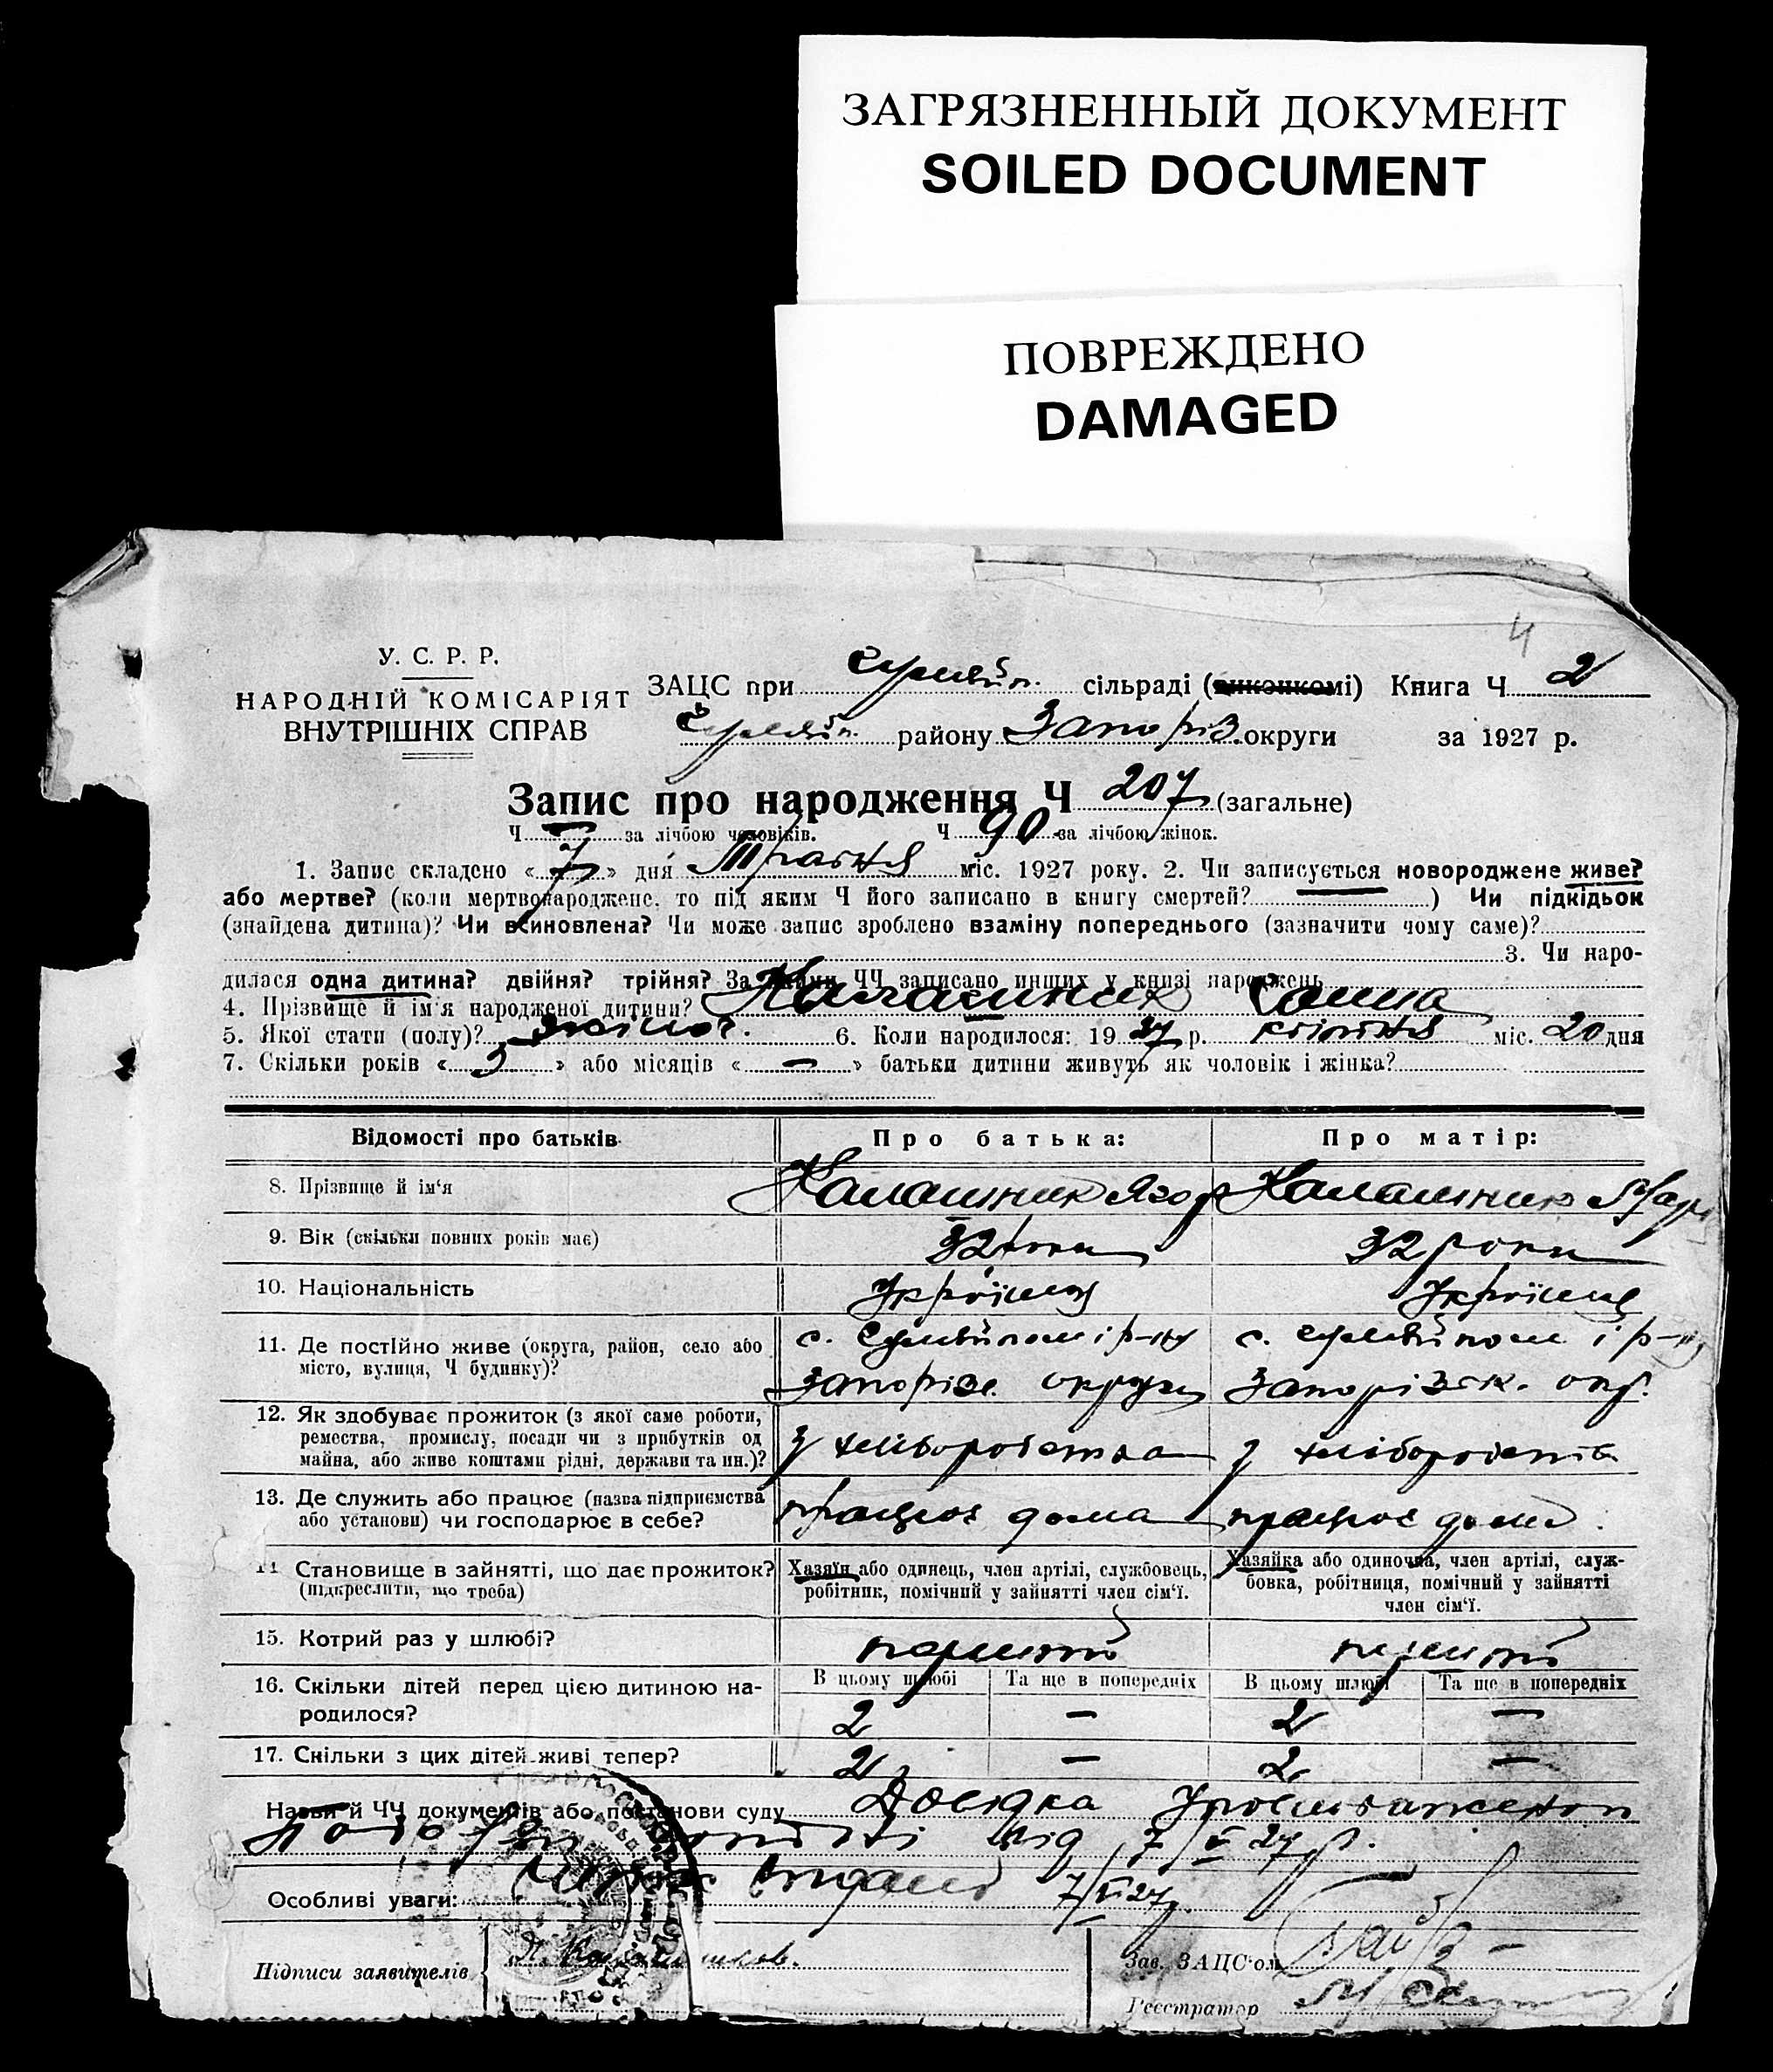 ЗАГРЯЗНЕННЫЙ ДОКУМЕНТ
SOILED DOCUMENT
ПОВРЕЖДЕНО
DAMAGED
4
У. С. Р. Р.
НАРОДНІЙ КОМІСАРІЯТ
ВНУТРІШНІХ СПРАВ
ЗАЦС при сільраді (виконкомі) Книга Ч 2
району Запоріз. округи за 1927 р.
Запис про народження Ч 207 (загальне)
Ч — за лічбою чоловіків. Ч 90 за лічбою жінок.
1. Запис складено « 7 » дня Травня міс. 1927 року. 2. Чи записується новороджене живе?
або мертве? (коли мертвонароджене, то під яким Ч його записано в книгу смертей? — ) Чи підкідьок
(знайдена дитина)? Чи всиновлена? Чи може запис зроблено взаміну попереднього (зазначити чому саме)?
3. Чи наро-
дилася одна дитина? двійня? трійня? За якими ЧЧ записано инших у книзі народжень
4. Прізвище й ім'я народженої дитини? Калашник Ганна
5. Якої стати (полу)? жіноч. 6. Коли народилося: 19 27 р. квітня міс. 20 дня
7. Скільки років « 3 » або місяців « — » батьки дитини живуть як чоловік і жінка?
Відомості про батьків Про батька: Про матір:
8. Прізвище й ім'я Калашник Калашник
9. Вік (скільки повних років має) 32 роки 32 роки
10. Національність Україець Українка
11. Де постійно живе (округа, район, село або
місто, вулиця, Ч будинку)?
Запорізк. округи Запорізьк. окр.
12. Як здобуває прожиток (з якої саме роботи,
ремества, промислу, посади чи з прибутків од
майна, або живе коштами рідні, держави та ин.)?
з хліборобства з хліборобств
13. Де служить або працює (назва підприємства
або установи) чи господарює в себе?
працює дома працює дома
14 Становище в зайнятті, що дає прожиток?
(підкреслити, що треба)
Хазяїн або одинець, член артілі, службовець,
робітник, помічний у зайнятті член сім'ї.
Хазяйка або одиночка, член артілі, служ-
бовка, робітниця, помічний у зайнятті
член сім'ї.
15. Котрий раз у шлюбі? перший перший
16. Скільки дітей перед цією дитиною на-
родилося?
В цьому шлюбі Та ще в попередніх В цьому шлюбі Та ще в попередніх
2 — 2 —
17. Скільки з цих дітей живі тепер? 2 — 2 —
Назви й ЧЧ документів або постанови суду Довідка
від 7/V 27 р.
Особливі уваги: 7/V 27
Підписи заявителів
Зав. ЗАЦС'ом
Реєстратор